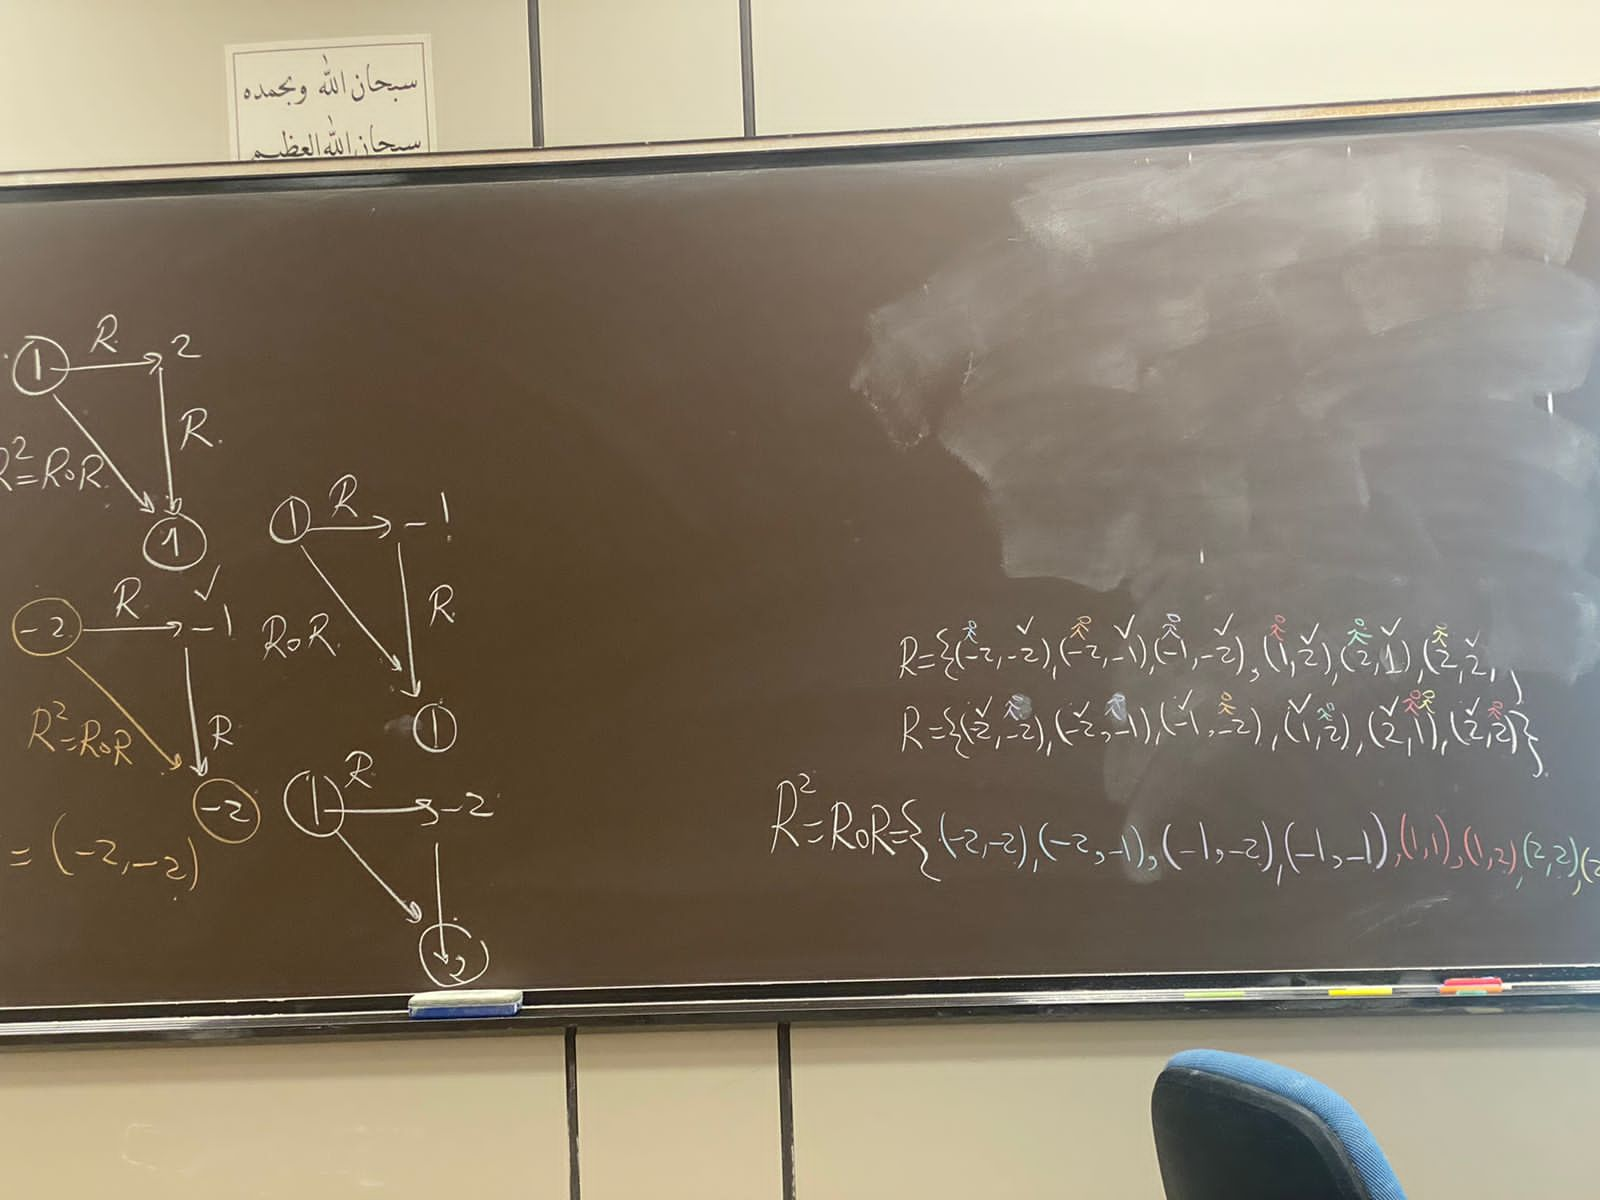 سبحان الله وبحمده
سبحان الله العظيم
1 R 2
R
R²=R∘R
1
1 R -1
R
R∘R
1
-2 R -1 ✓
R
R²=R∘R
-2
= (-2,-2)
1 R -2
R={(-2,-2),(-2,-1),(-1,-2),(1,2),(2,1),(2,2,
R={(-2,-2),(-2,-1),(-1,-2),(1,2),(2,1),(2,2)}
R²=R∘R={(-2,-2),(-2,-1),(-1,-2),(-1,-1),(1,1),(1,2),(2,2),(2